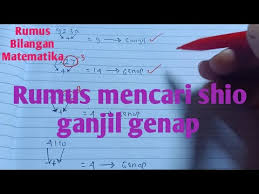 Rumus
Bilangan
Matematika
= 9 → Ganjil
= 14 → Genap
Rumus mencari shio
ganjil genap
4110
= 4 → Genap